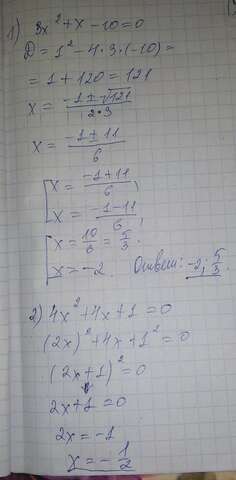 1) 3x² + x - 10 = 0
D = 1² - 4·3·(-10) =
= 1 + 120 = 121
x = (-1 ± √121)/(2·3)
x = (-1 ± 11)/6
[x = (-1+11)/6,
x = (-1-11)/6;
[x = 10/6 = 5/3
x = -2. Ответ: -2; 5/3.
2) 4x² + 4x + 1 = 0
(2x)² + 4x + 1² = 0
(2x+1)² = 0
2x+1 = 0
2x = -1
x = -1/2